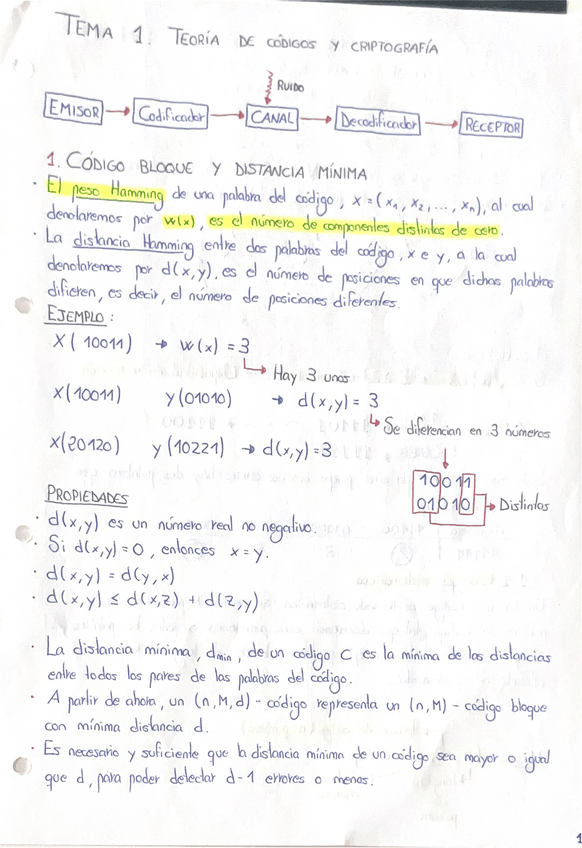 TEMA 1. TEORÍA DE CÓDIGOS Y CRIPTOGRAFÍA
RUIDO
EMISOR → Codificador → CANAL → Decodificador → RECEPTOR
1. CÓDIGO BLOQUE Y DISTANCIA MÍNIMA
· El peso Hamming de una palabra del código, x = (x₁, x₂, ..., xₙ), al cual
denotaremos por w(x), es el número de componentes distintos de cero.
· La distancia Hamming entre dos palabras del código, x e y, a la cual
denotaremos por d(x,y), es el número de posiciones en que dichas palabras
difieren, es decir, el número de posiciones diferentes.
EJEMPLO:
X(10011) → w(x) = 3
↳ Hay 3 unos
X(10011) y(01010) → d(x,y) = 3
↳ Se diferencian en 3 números
X(20120) y(10221) → d(x,y) = 3
10011
01010 → Distintos
PROPIEDADES
· d(x,y) es un número real no negativo.
· Si d(x,y) = 0, entonces x = y.
· d(x,y) = d(y,x)
· d(x,y) ≤ d(x,z) + d(z,y)
· La distancia mínima, dmin, de un código C es la mínima de las distancias
entre todos los pares de las palabras del código.
· A partir de ahora, un (n,M,d) - código representa un (n,M) - código bloque
con mínima distancia d.
· Es necesario y suficiente que la distancia mínima de un código sea mayor o igual
que d, para poder detectar d-1 errores o menos.
1